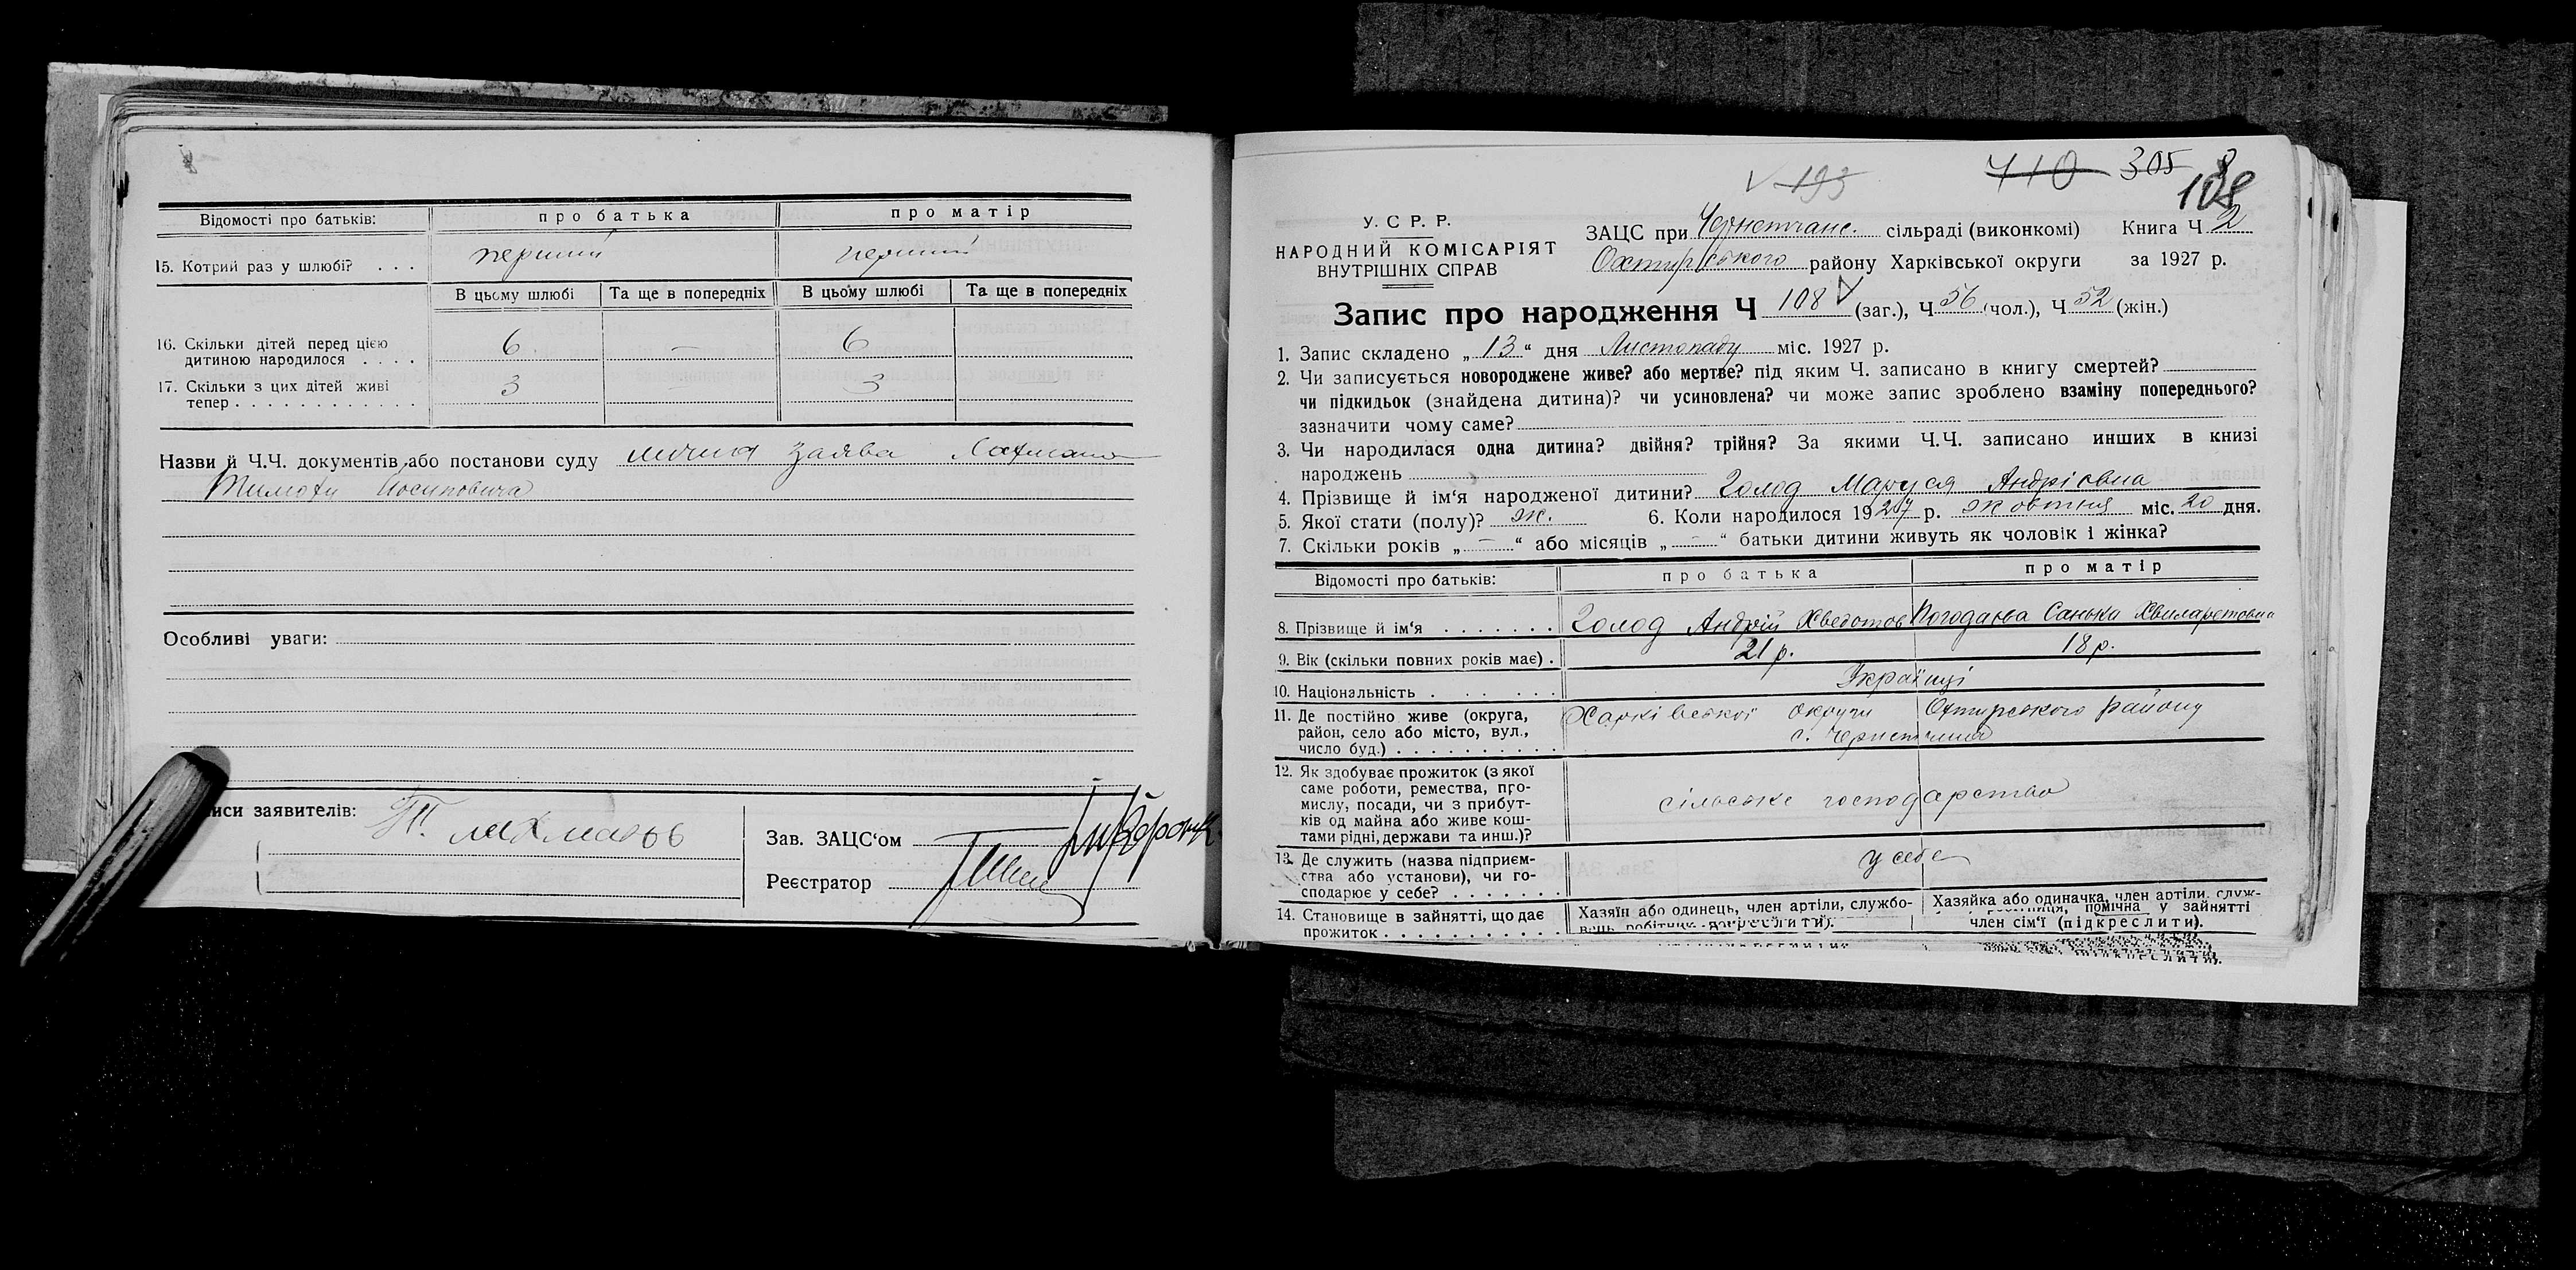 Відомості про батьків: про батька про матір
15. Котрий раз у шлюбі? . . . перший перший
В цьому шлюбі Та ще в попередніх В цьому шлюбі Та ще в попередніх
16. Скільки дітей перед цією
дитиною народилося . . . . 6 — 6
17. Скільки з цих дітей живі
тепер . . . . . . . . . . . . 3 3
Назви й Ч.Ч. документів або постанови суду лична заява
Йосиповича
Особливі уваги:
иси заявителів:
Зав. ЗАЦС‘ом
Реєстратор
V 193 710 305
108
У. С Р. Р.
НАРОДНИЙ КОМІСАРІЯТ
ВНУТРІШНІХ СПРАВ
ЗАЦС при Чернетчанс. сільраді (виконкомі) Книга Ч 2
Охтирського району Харківської округи за 1927 р.
Запис про народження Ч 108 V (заг.), Ч 56 (чол.), Ч 52 (жін.)
1. Запис складено „ 13 “ дня Листопаду міс. 1927 р.
2. Чи записується новороджене живе? або мертве? під яким Ч. записано в книгу смертей?
чи підкидьок (знайдена дитина)? чи усиновлена? чи може запис зроблено взаміну попереднього?
зазначити чому саме?
3. Чи народилася одна дитина? двійня? трійня? За якими Ч.Ч. записано инших в книзі
народжень
4. Прізвище й ім‘я народженої дитини? Голод Маруся Андріовна
5. Якої стати (полу)? ж. 6. Коли народилося 1927 р. жовтня міс. 20 дня.
7. Скільки років „ — “ або місяців „ — “ батьки дитини живуть як чоловік і жінка?
Відомості про батьків: про батька про матір
8. Прізвище й ім‘я . . . . . . . Голод Андрій Хведотов Погодаєва Санька Хвиларетовна
9. Вік (скільки повних років має) . 21 р. 18 р.
10. Національність . . . . . . Українці
11. Де постійно живе (округа, Харківської округи Охтирського району
район, село або місто, вул.,
число буд.) . . . . . . . . . . с. Чернетчина
12. Як здобуває прожиток (з якої
саме роботи, ремества, про-
мислу, посади, чи з прибут-
ків од майна або живе кош-
тами рідні, держави та инш.)? сільське господарство
13. Де служить (назва підприєм-
ства або установи), чи го-
сподарює у себе? . . . . . . . у себе
14. Становище в зайнятті, що дає
прожиток . . . . . . . . . . .
Хазяїн або одинець, член артіли, службо-
вець, робітник (підкреслити).
Хазяйка або одиначка, член артіли, служ-
помічна у зайнятті
член сім‘ї (підкреслити).